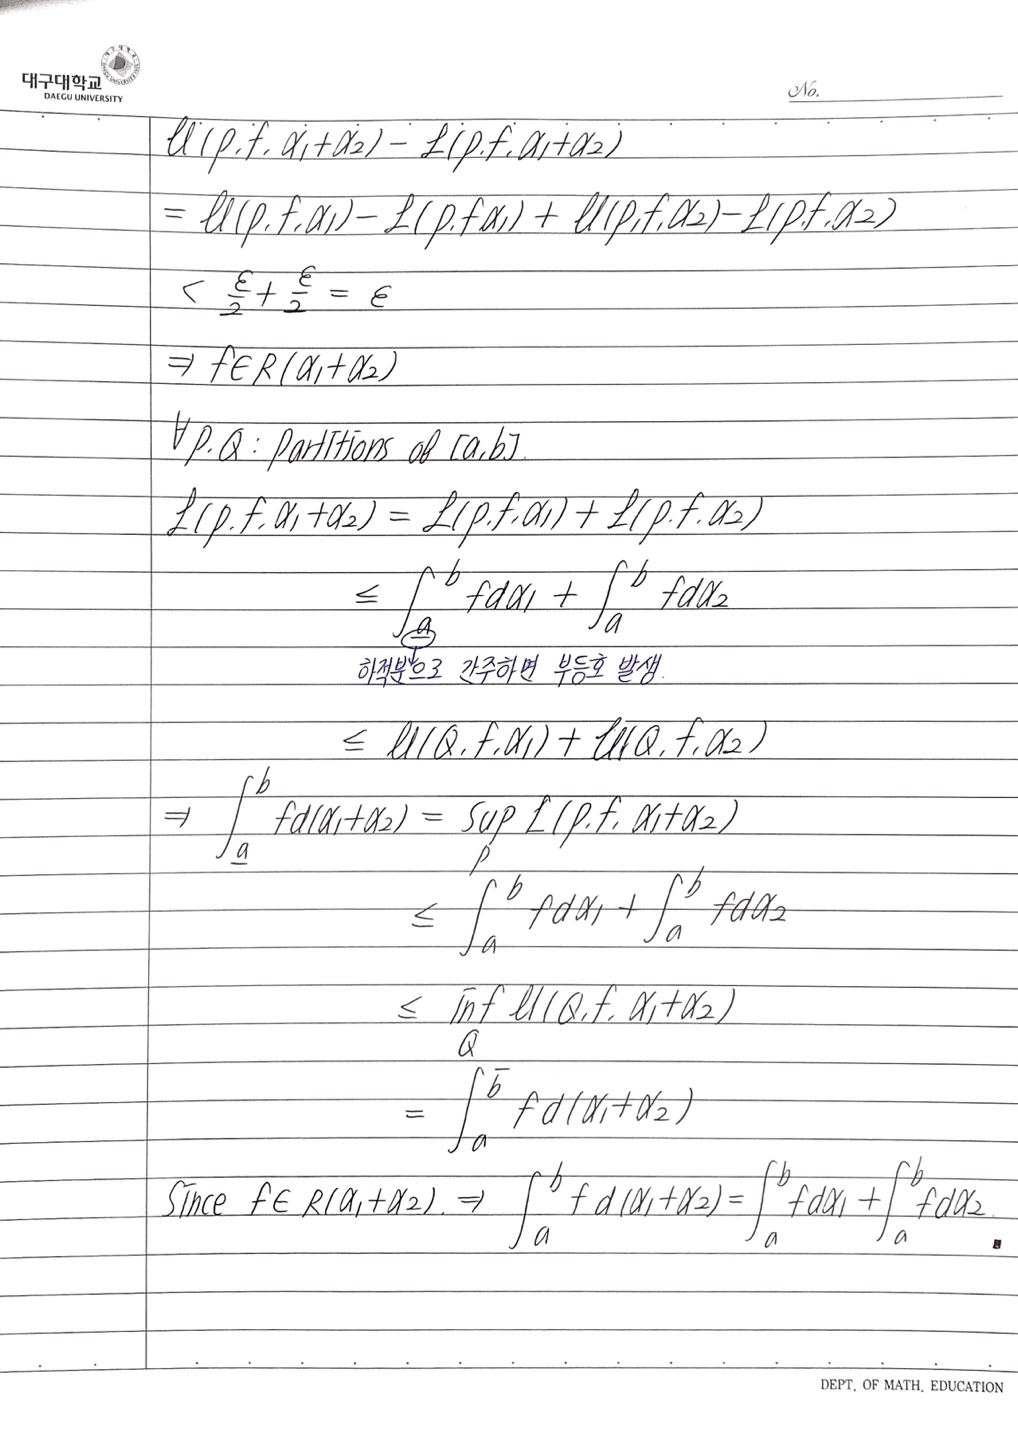 대구대학교
DAEGU UNIVERSITY
No.
U(p.f.α₁+α₂) - L(p.f.α₁+α₂)
= U(p.f.α₁) - L(p.fα₁) + U(p,f.α₂) - L(p.f.α₂)
< ε/2 + ε/2 = ε
⇒ f∈R(α₁+α₂)
∀p.Q : partitions of [a,b].
L(p.f.α₁+α₂) = L(p.f.α₁) + L(p.f.α₂)
≤ ∫ₐᵇ fdα₁ + ∫ₐᵇ fdα₂
하적분으로 간주하면 부등호 발생.
≤ U(Q.f.α₁) + U(Q.f.α₂)
⇒ ∫_a̲^b fd(α₁+α₂) = sup_p L(p.f.α₁+α₂)
≤ ∫ₐᵇ fdα₁ + ∫ₐᵇ fdα₂
≤ inf_Q U(Q.f.α₁+α₂)
= ∫_a^b̄ fd(α₁+α₂)
Since f∈R(α₁+α₂). ⇒ ∫ₐᵇ fd(α₁+α₂) = ∫ₐᵇ fdα₁ + ∫ₐᵇ fdα₂.
DEPT. OF MATH. EDUCATION